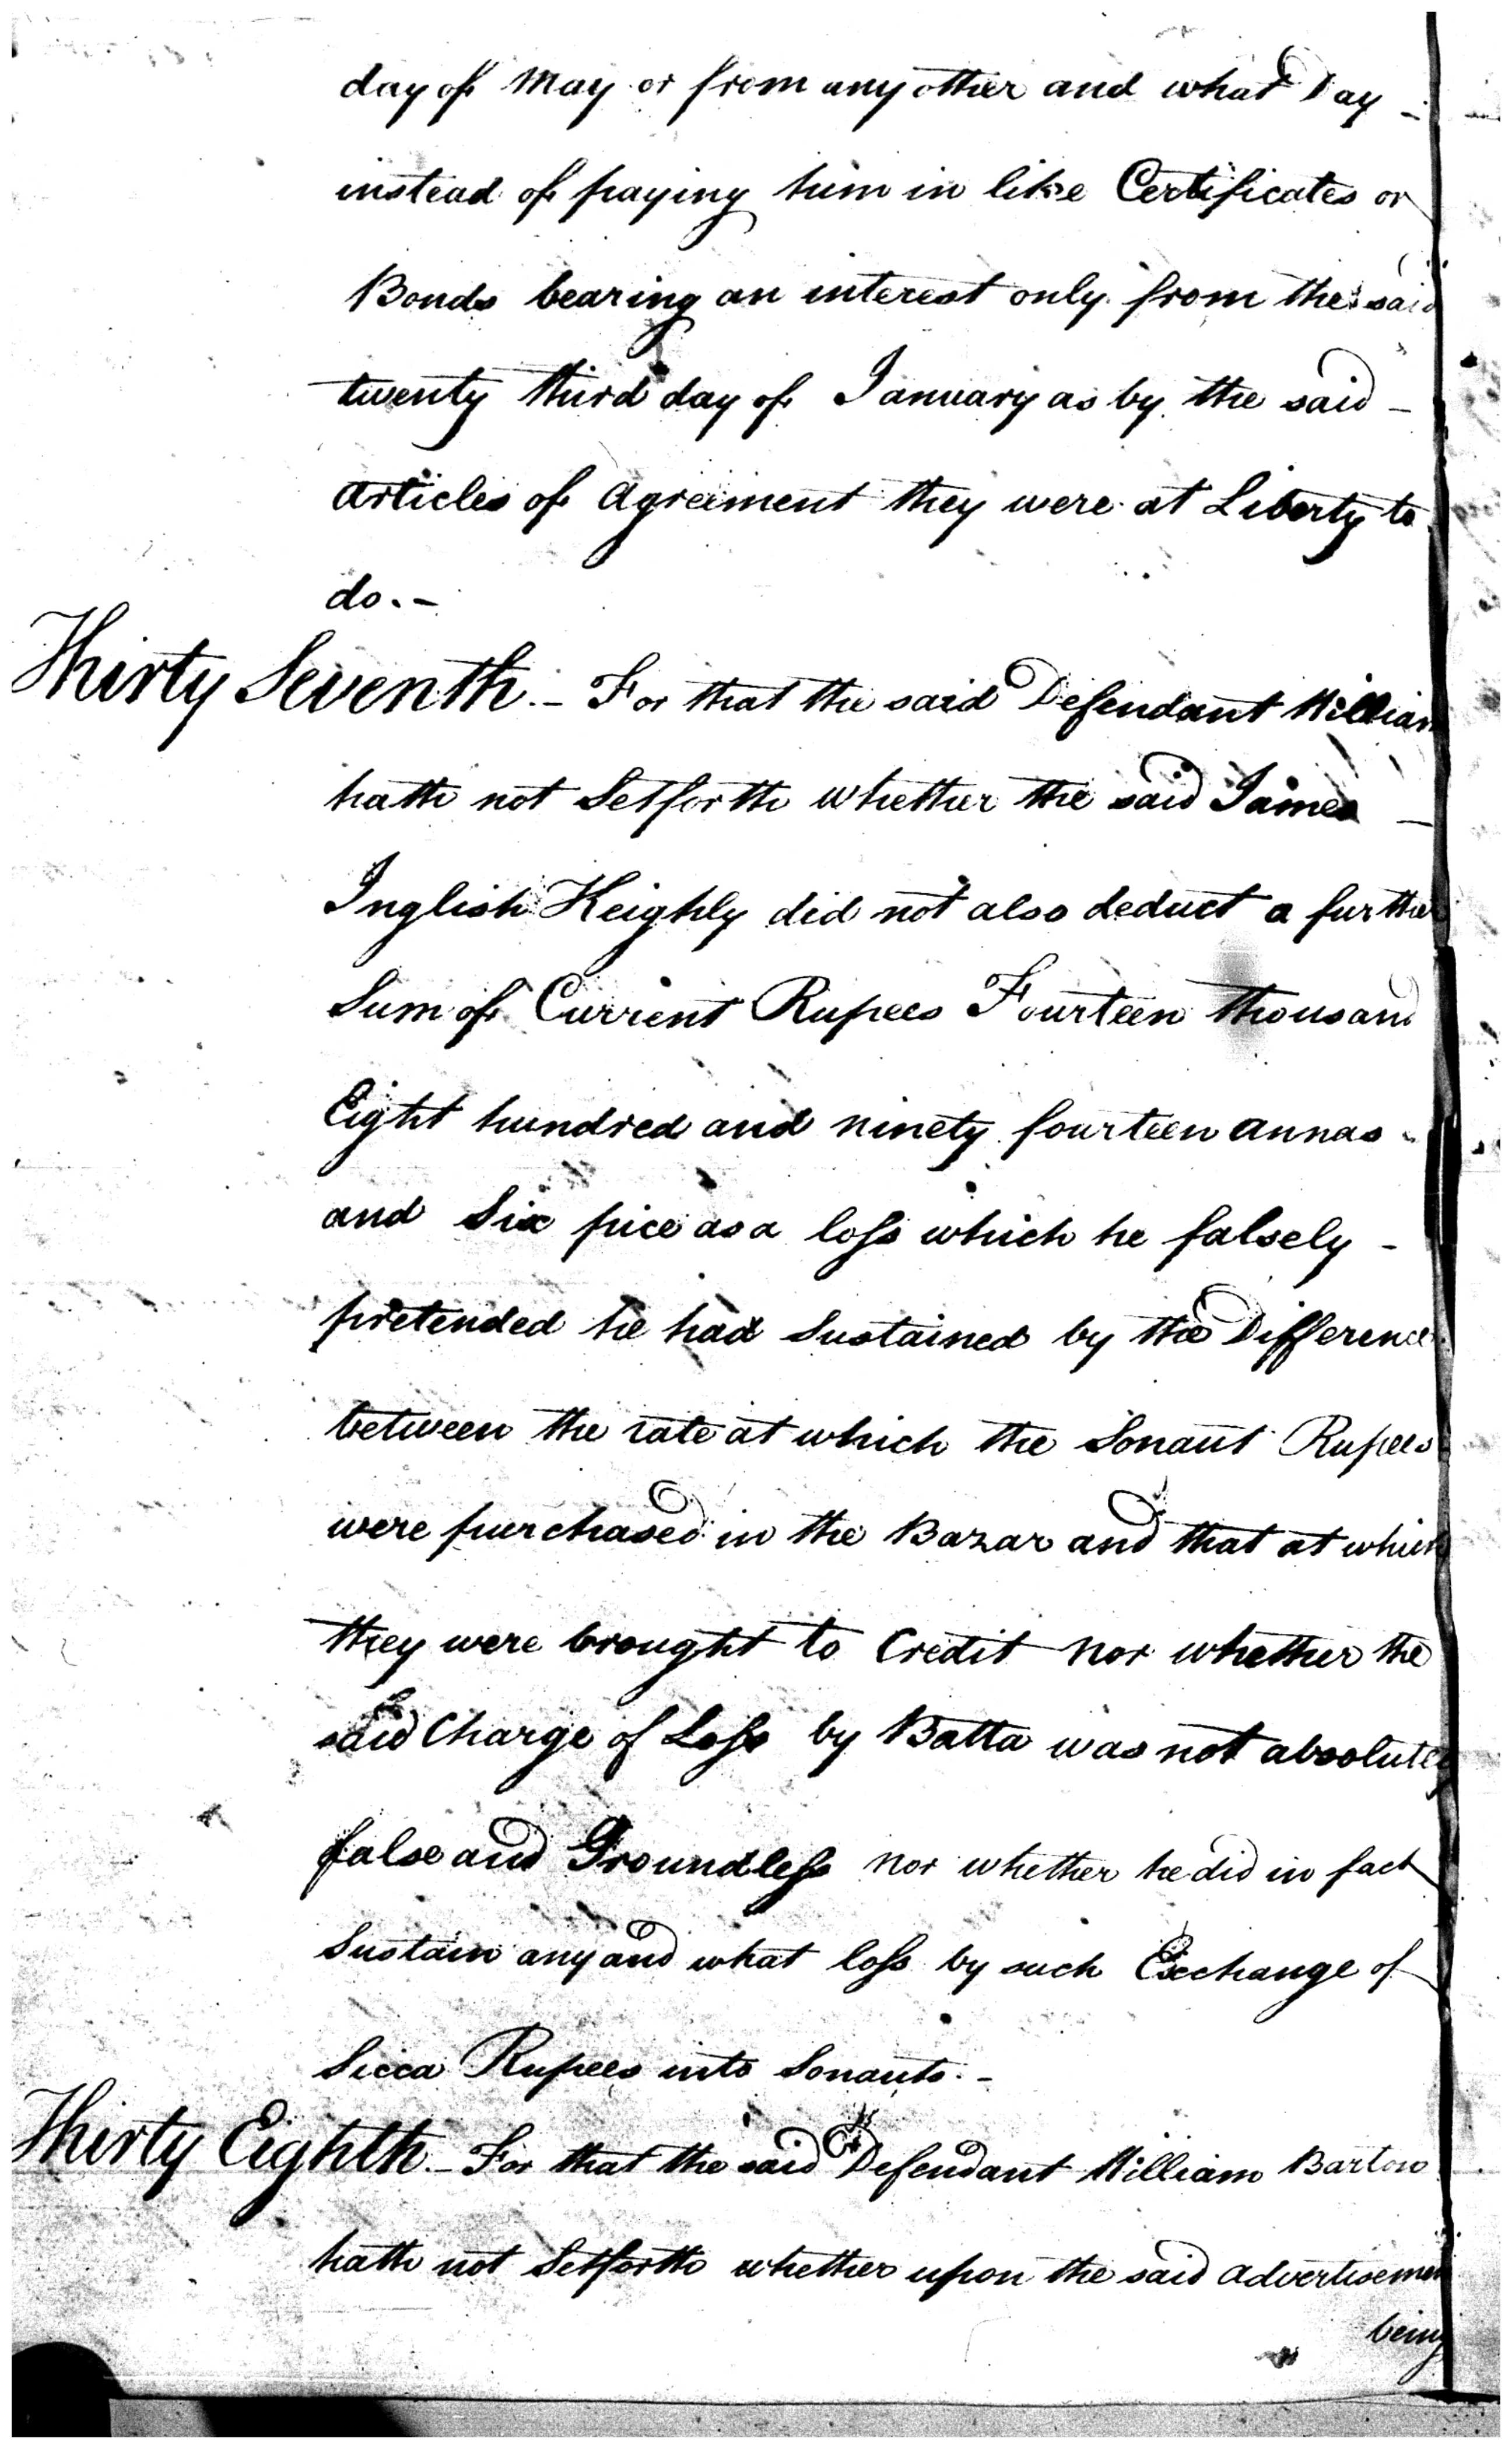 day of May or from any other and what Day -
instead of paying him in like Certificates or
Bonds bearing an interest only from the said
twenty third day of January as by the said -
articles of Agreement they were at Liberty to
do. -
Thirty Seventh. - For that the said Defendant William
hath not Setforth whether the said James -
Inglish Keighly did not also deduct a further
Sum of Current Rupees Fourteen thousand
Eight hundred and ninety fourteen annas -
and Six pice as a loss which he falsely -
pretended he had Sustained by the Difference
between the rate at which the Sonaut Rupees
were purchased in the Bazar and that at which
they were brought to Credit nor whether the
said Charge of Loss by Batta was not absolutely
false and Groundless nor whether he did in fact
Sustain any and what loss by such Exchange of
Sicca Rupees into Sonauts. -
Thirty Eighth. - For that the said Defendant William Barton
hath not Setforth whether upon the said advertisement
being